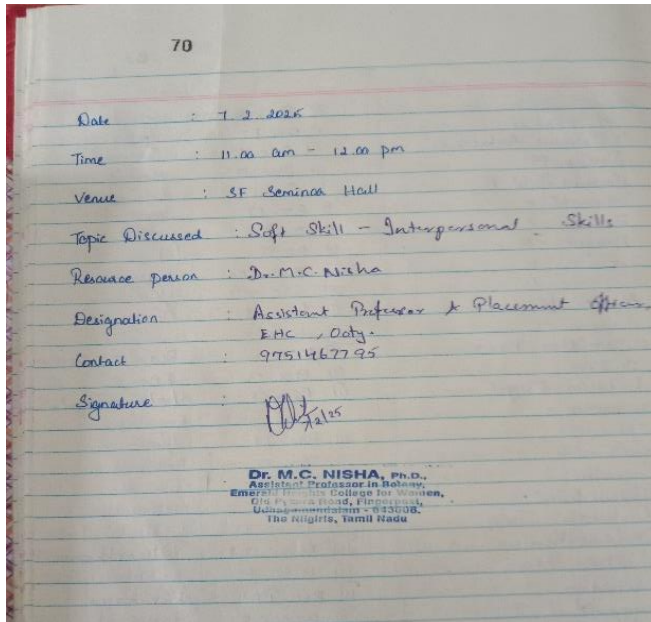 70
Date : 7.2.2025
Time : 11.00 am - 12.00 pm
Venue : SF Seminar Hall
Topic Discussed : Soft Skill - Interpersonal Skills
Resource person : Dr. M.C. Nisha
Designation : Assistant Professor & Placement Officer
EHC, Ooty.
Contact : 9751467795
Signature :
7/2/25
Dr. M.C. NISHA, Ph.D.,
Assistant Professor in Botany,
Emerald Heights College for Women,
Old Mysore Road, Fingerpost,
Udhagamandalam - 643006.
The Nilgiris, Tamil Nadu